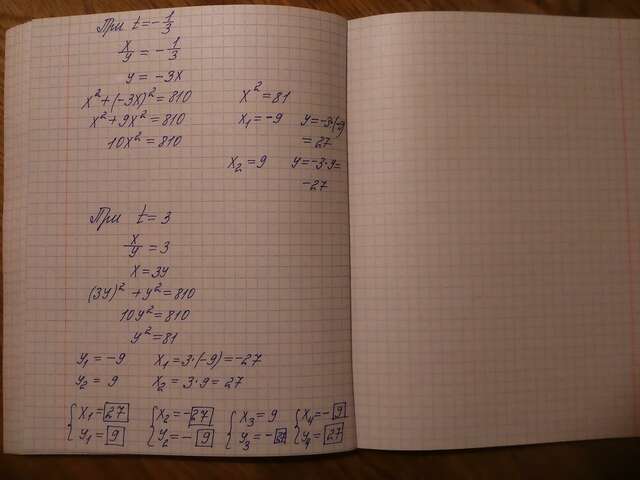 При t = -1/3
x/y = -1/3
y = -3x
x² + (-3x)² = 810
x² + 9x² = 810
10x² = 810
x² = 81
x₁ = -9 y = -3·(-9)
= 27
x₂ = 9 y = -3·9 =
-27
При t = 3
x/y = 3
x = 3y
(3y)² + y² = 810
10y² = 810
y² = 81
y₁ = -9 x₁ = 3·(-9) = -27
y₂ = 9 x₂ = 3·9 = 27
{ x₁ = 27 { x₂ = -27 { x₃ = 9 { x₄ = -9
y₁ = 9 y₂ = -9 y₃ = - y₄ = 27